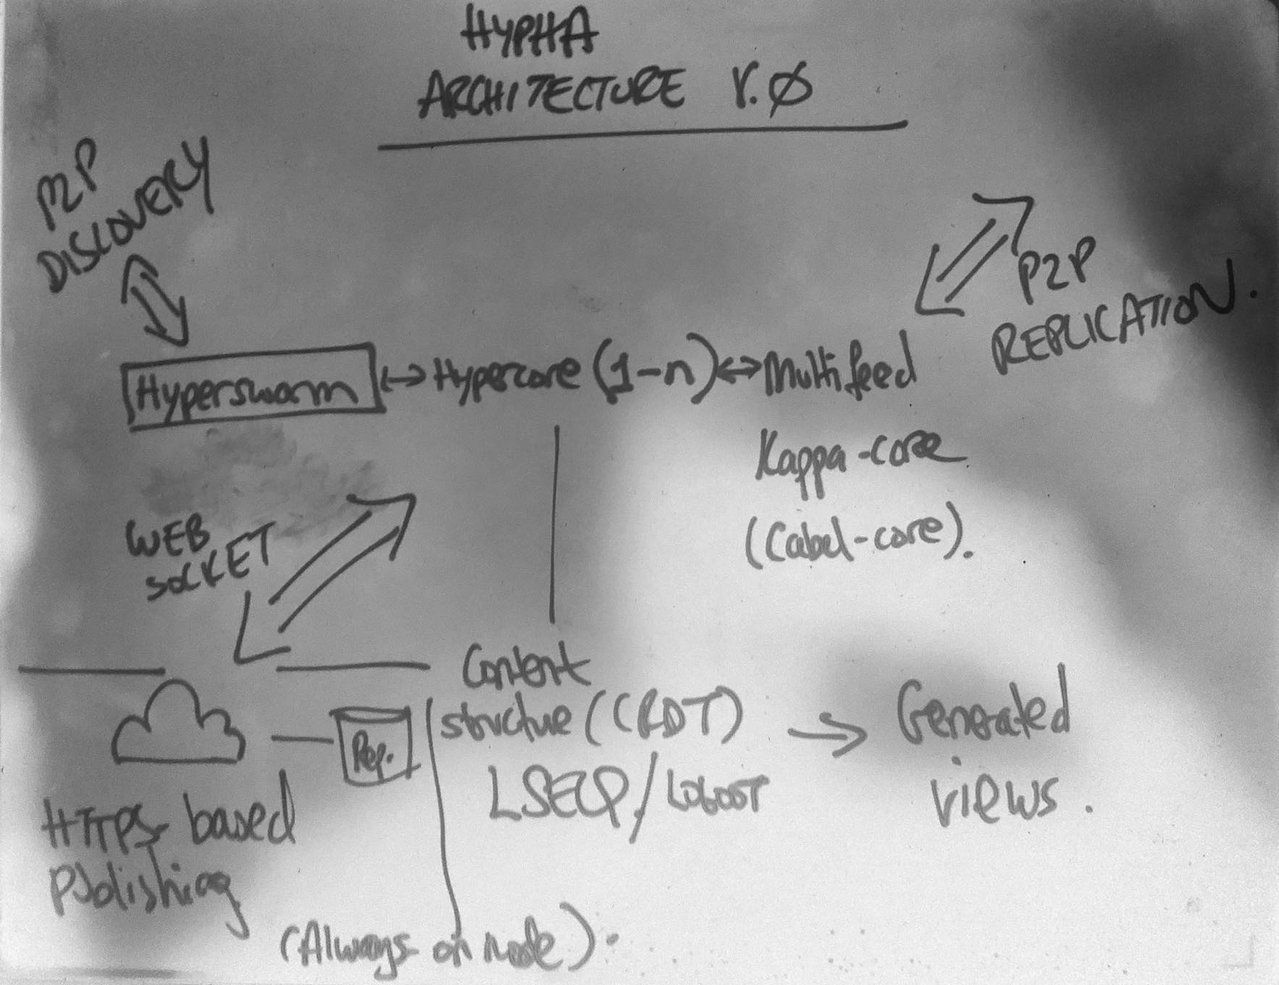 HYPHA
ARCHITECTURE V.Ø
P2P
DISCOVERY
P2P
REPLICATION.
Hyperswarm
Hypercore (1-n)
Multifeed
Kappa-core
(Cabal-core).
WEB
SOCKET
Content
structure (CRDT)
LSEQ/LOGOOT
Generated
views.
Rep.
HTTPS based
Publishing
(Always on node).